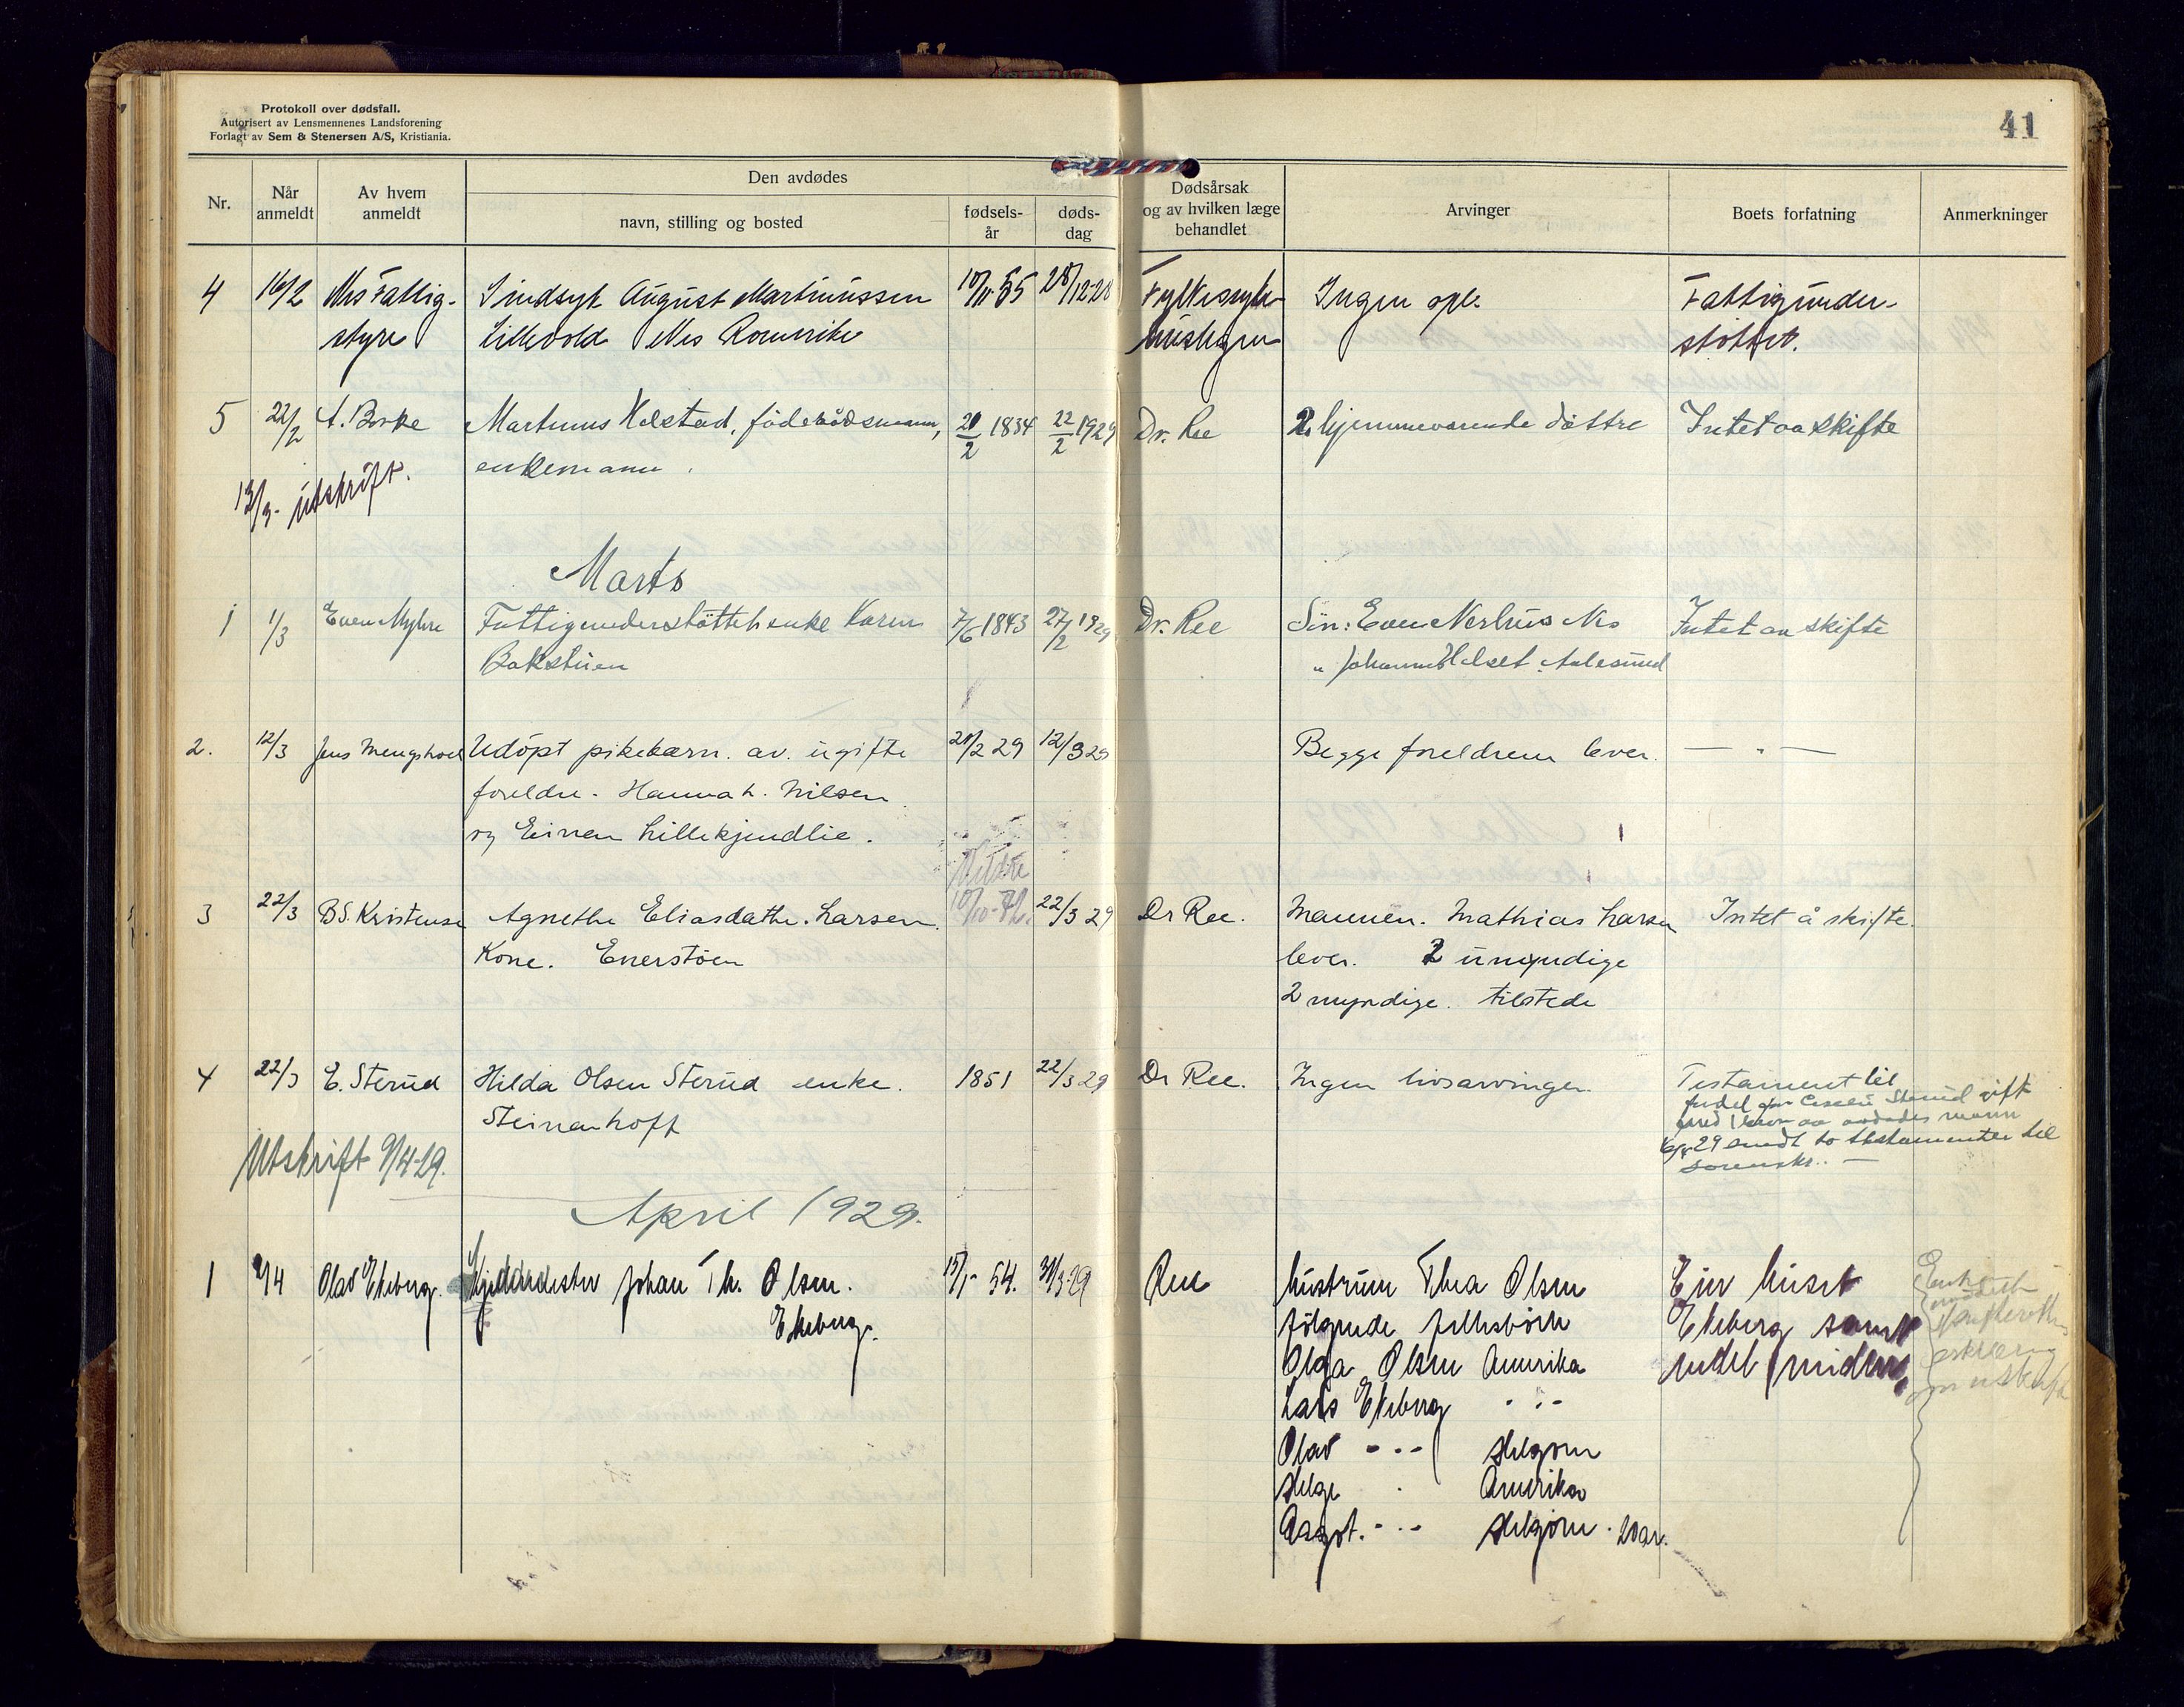 Protokoll over dødsfall.
Autorisert av Lensmennenes Landsforening
Forlagt av Sem & Stenersen A/S, Kristiania.
41
Nr.
Når anmeldt
Av hvem anmeldt
Den avdødes
navn, stilling og bosted
fødsels-år
døds-dag
Dødsårsak og av hvilken læge behandlet
Arvinger
Boets forfatning
Anmerkninger
4 16/2 Nes Fattig- Sindsyk August Martinussen 55 28/12-28 Ingen opl. Fattigunder-
styre Lillevold Nes Romerike støttet.
5 22/2 Martinus Helstad,föderådsmann, 20/2 1834 22/2 1929 Dr. Ree 2 hjemmeværende döttre Intet aa skifte
enkemann.
13/3. Utskrift.
Marts
1 1/3 Even Myhre Fattigunderstöttet enke Karen 7/6 1843 27/2 1929 Dr. Ree Sön: Even Nerhus Nes Intet aa skifte
Bakstuen " Johannes Helset Aalesund
2. 12/3 Jens Mengshoel Udöpt pikebarn. av. ugifte 21/2 29 12/3 29 Begge foreldrene lever. — " —
foreldre. Hanna L. Nilsen
og Einar Lillekjendlie.
3 22/3 B.S. Kristensen Agnethe Eliasdatter Larsen. 10/10-72. 22/3 29 Dr Ree. Mannen. Mathias Larsen Intet å skifte.
Kone. Enerstöen lever. 2 umyndige
2 myndige. tilstede
4 22/3 E. Sterud Hilda Olsen Sterud enke. 1851 22/3 29 Dr Ree. Ingen livsarvinger. Testament til
Steinerhoff
fordel for Sterud gift
med avdødes mann
29 sendt to testamenter til
sorenskr. —
Utskrift 9/4-29.
April 1929.
1 2/4 Olav Ekeberg. Johan Th. Olsen. 15/1- 54. 31/3-29 Ree hustruen Thea Olsen Eier huset
Ekeberg. følgende fellesbörn Ekeberg samt
Olga Olsen Amerika endel midler.
Lars Ekeberg - " -
Olav - " - Helgøen
Helge " Amerika
Aagot. - " - Helgøen. 20 år.
Enke